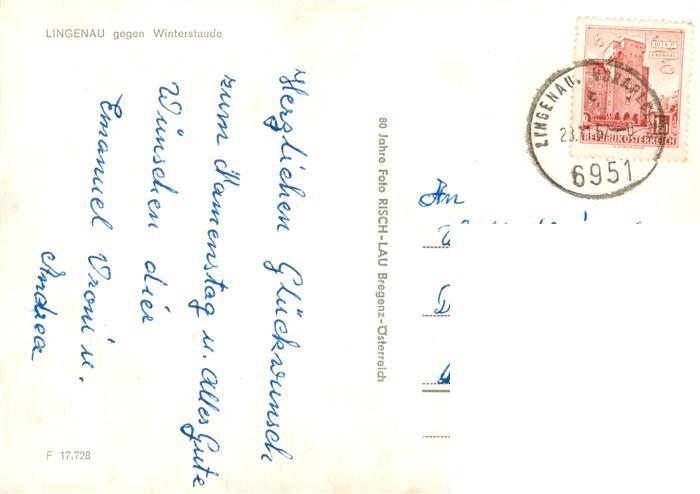 LINGENAU gegen Winterstaude
Herzlichen Glückwunsch
zum Namenstag u. Alles Gute
Wünschen dier
Emanuel Vroni u.
Andrea
F 17.728
80 Jahre Foto RISCH-LAU Bregenz-Österreich
WIEN
ERDBERG
REPUBLIK ÖSTERREICH
LINGENAU,
6951
An